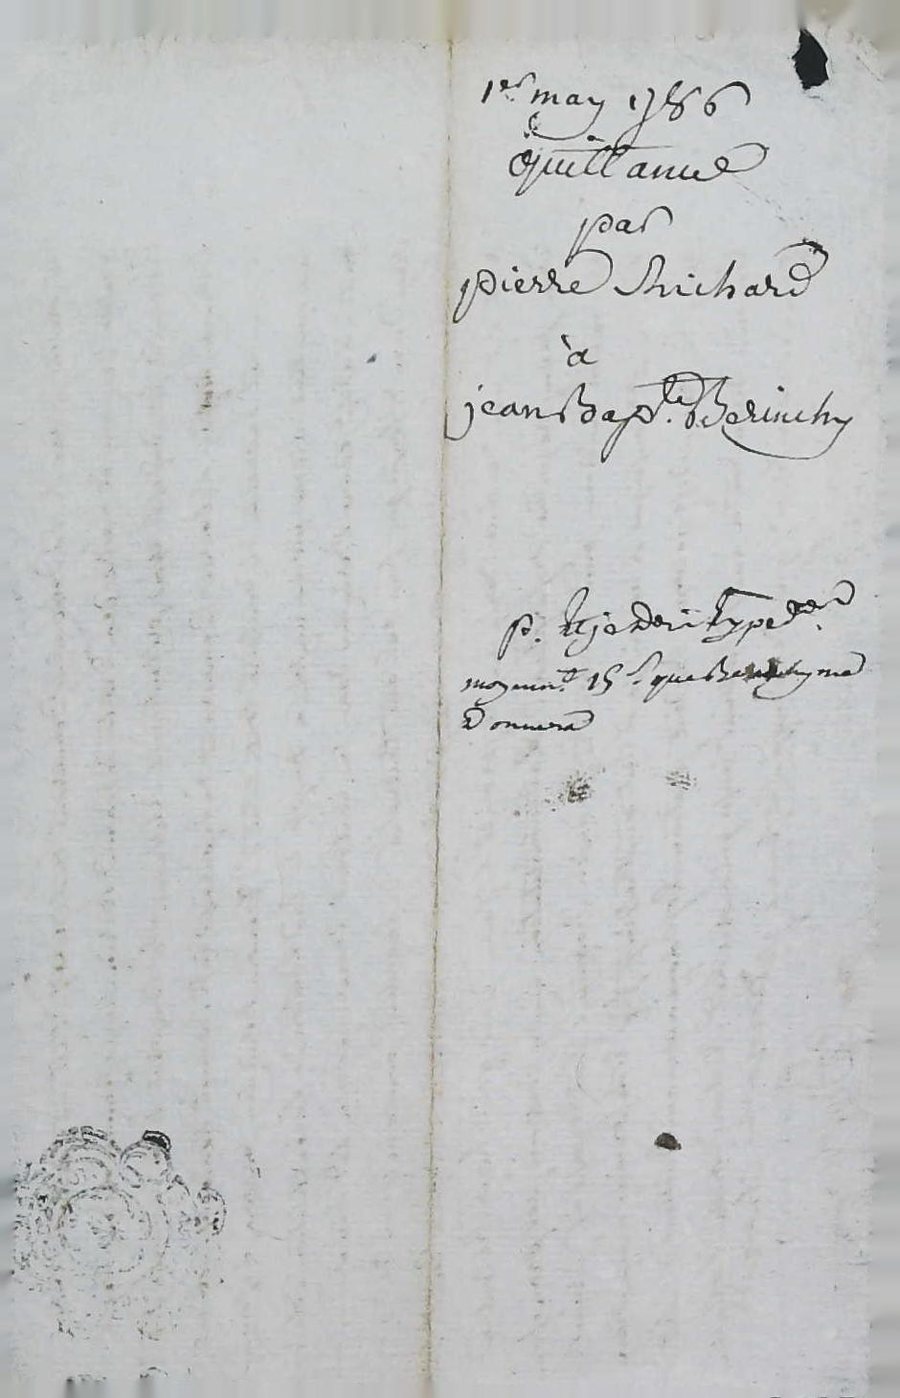 1er may 1786
quittance
par
pierre Richard
à
jean Bapte. Berinchy
p.
moyennt. 15 s. que me
Donnera